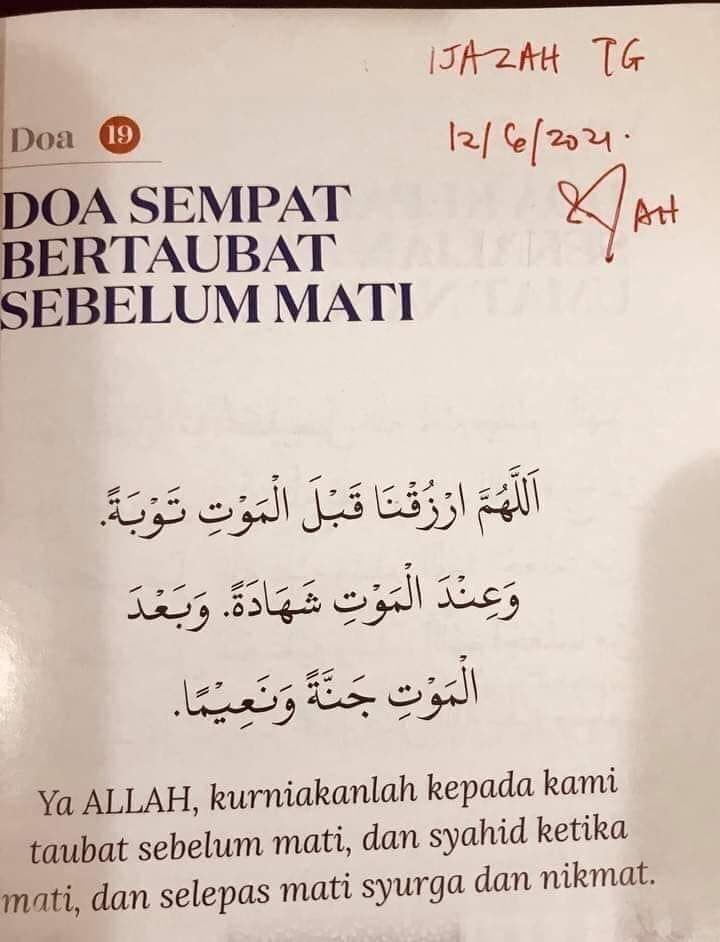 IJAZAH TG
12/6/2021.
AH
Doa 19
DOA SEMPAT
BERTAUBAT
SEBELUM MATI
اَللَّهُمَّ ارْزُقْنَا قَبْلَ الْمَوْتِ تَوْبَةً.
وَعِنْدَ الْمَوْتِ شَهَادَةً. وَبَعْدَ
الْمَوْتِ جَنَّةً وَنَعِيْمًا.
Ya ALLAH, kurniakanlah kepada kami
taubat sebelum mati, dan syahid ketika
mati, dan selepas mati syurga dan nikmat.